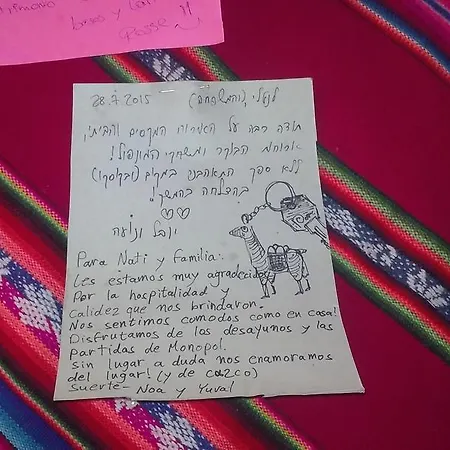 besos y
28.7.2015
לנטלי (והמשפחה)
תודה רבה על האירוח המקסים והביתי,
ארוחות הבוקר ומשחקי המונופול!
ללא ספק התאהבנו במקום (ובקוסקו)
בהצלחה בהמשך!
יובל ונועה
Para Nati y familia:
Les estamos muy agradecidos
Por la hospitalidad y
calidez que nos brindaron.
Nos sentimos comodos como en casa!
Disfrutamos de los desayunos y las
partidas de Monopol.
sin lugar a duda nos enamoramos
del lugar! (y de cozco)
suerte- Noa y Yuval